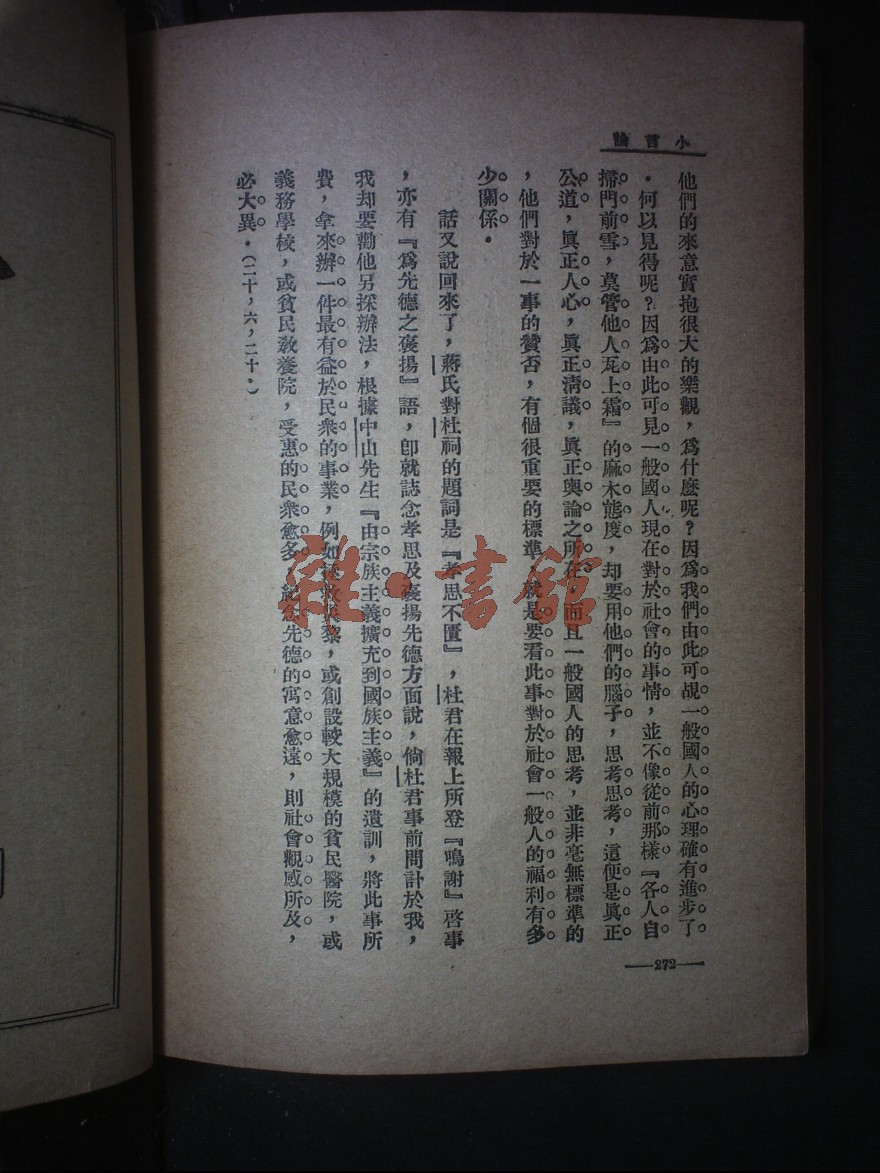 小言論
他們的來意實抱很大的樂觀，爲什麼呢？因爲我們由此可覘一般國人的心理確有進步了
．何以見得呢？因爲由此可見一般國人現在對於社會的事情，並不像從前那樣『各人自
掃門前雪，莫管他人瓦上霜』的麻木態度，却要用他們的腦子，思考思考，這便是眞正
公道，眞正人心，眞正淸議，眞正輿論之所在．而且一般國人的思考，並非毫無標準的
，他們對於一事的贊否，有個很重要的標準，就是要看此事對於社會一般人的福利有多
少關係．
話又說回來了，蔣氏對杜祠的題詞是『孝思不匱』，杜君在報上所登『鳴謝』啓事
，亦有『爲先德之褒揚』語，卽就誌念孝思及褒揚先德方面說，倘杜君事前問計於我，
我却要勸他另採辦法，根據中山先生『由宗族主義擴充到國族主義』的遺訓，將此事所
費，拿來辦一件最有益於民衆的事業，例如拯救災黎，或創設較大規模的貧民醫院，或
義務學校，或貧民敎養院，受惠的民衆愈多，紀念先德的寓意愈遠，則社會觀感所及，
必大異．（二十，六，二十．）
272
雜·書館